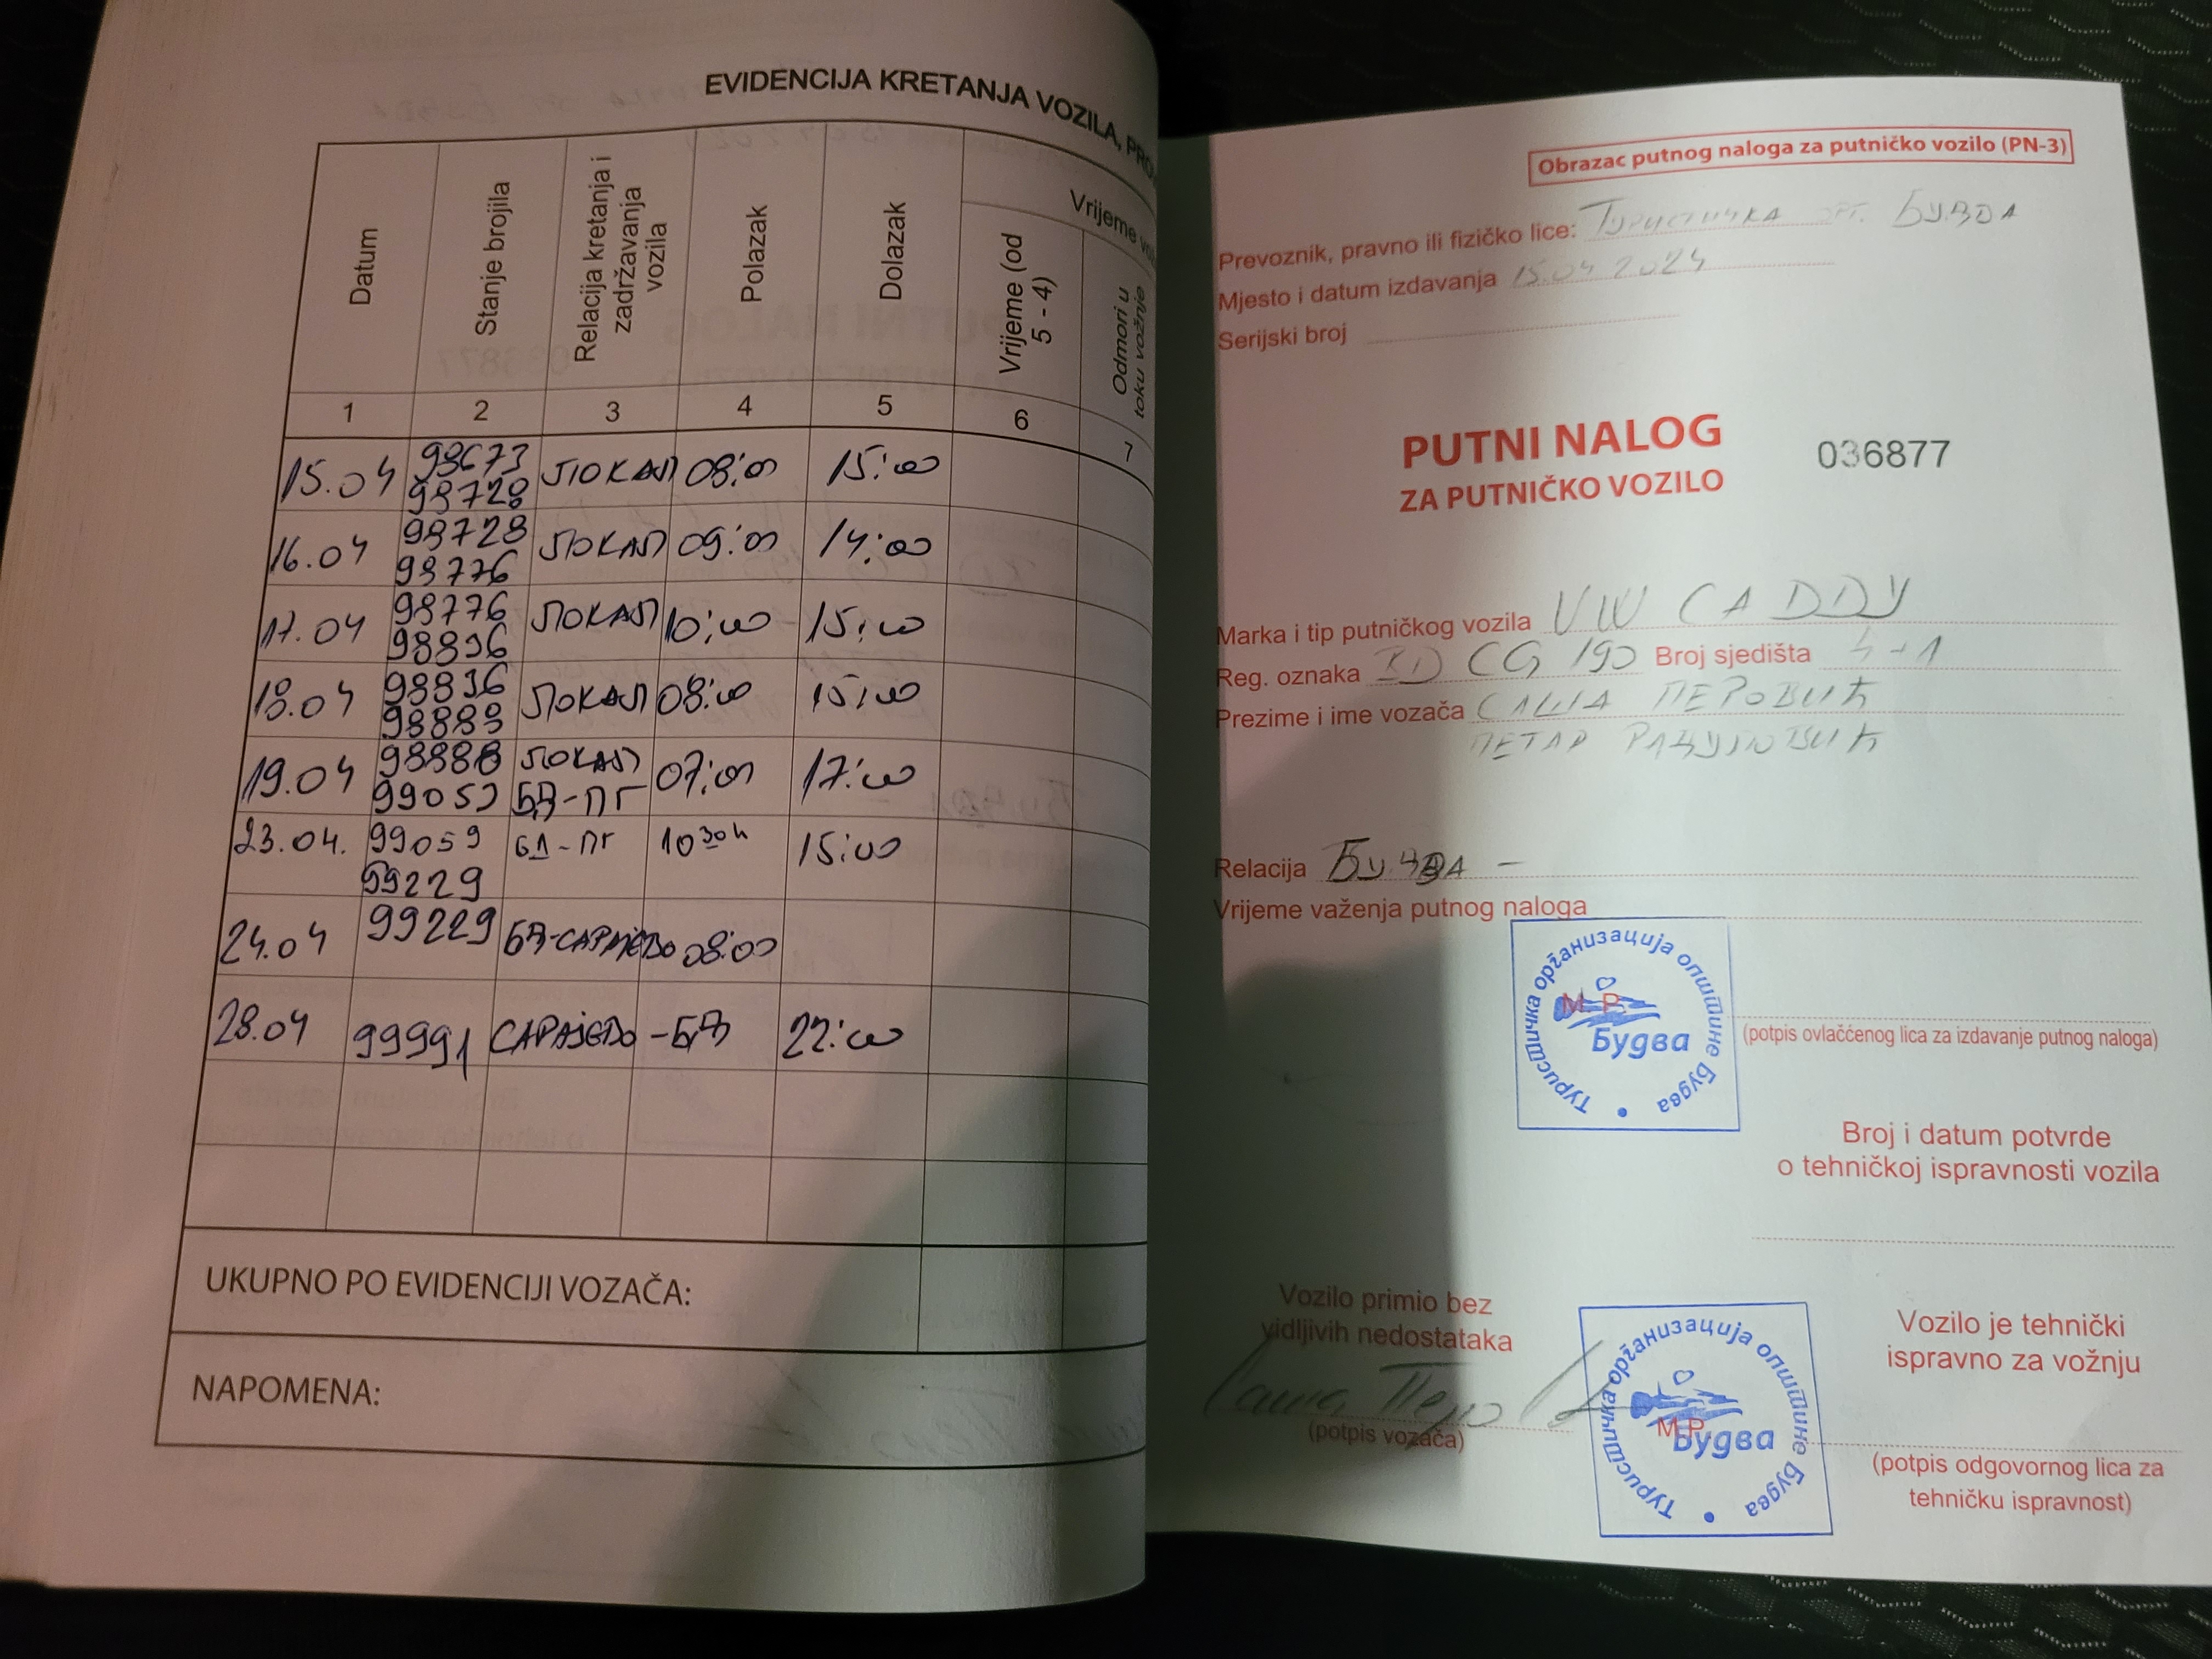 EVIDENCIJA KRETANJA VOZILA,
Datum
Stanje brojila
Relacija kretanja i
zadržavanja
vozila
Polazak
Dolazak
Vrijeme
Vrijeme (od
5 - 4)
Odmori u
toku vožnje
1 2 3 4 5 6 7
15.04 98673 ЛОКАЛ 08:00 15:00
98728
16.04 98728 ЛОКАЛ 09:00 14:00
98776
17.04 98776 ЛОКАЛ 10:00 15:00
98836
18.04 98836 ЛОКАЛ 08:00 15:00
98888
19.04 98888 ЛОКАЛ 07:00 17:00
99059 БД-ПГ
23.04. 99059 БД-ПГ 10 30 h 15:00
99229
24.04 99229 БД-САРАЈЕВО 08:00
28.04 99991 САРАЈЕВО -БД 22:00
UKUPNO PO EVIDENCIJI VOZAČA:
NAPOMENA:
Obrazac putnog naloga za putničko vozilo (PN-3)
Prevoznik, pravno ili fizičko lice: Туристичка орг. БУДВА
Mjesto i datum izdavanja 15.04 2024
Serijski broj
PUTNI NALOG
ZA PUTNIČKO VOZILO
036877
Marka i tip putničkog vozila VW CADDY
Reg. oznaka CG 190 Broj sjedišta 4+1
Prezime i ime vozača САША ПЕРОВИЋ
ПЕТАР
Relacija БУДВА -
Vrijeme važenja putnog naloga
Туристичка организација општине Будва
M.P.
Будва
(potpis ovlaććenog lica za izdavanje putnog naloga)
Broj i datum potvrde
o tehničkoj ispravnosti vozila
Vozilo primio bez
vidljivih nedostataka
Саша Перо
(potpis vozača)
Туристичка организација општине Будва
M.P.
Будва
Vozilo je tehnički
ispravno za vožnju
(potpis odgovornog lica za
tehničku ispravnost)